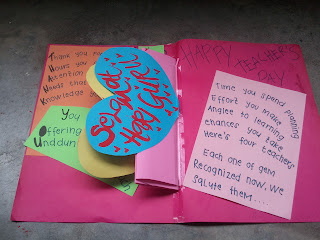 Thank you
Hours you
Attention
Hands
Knowledge
You
Offering
Selamat
Hari Guru
HAPPY TEACHERS
DAY
Time you spend planning
Effort you make
Anglee to learning
chances you take
Here's four teachers
Each one of gem
Recognized now. We
salute them....